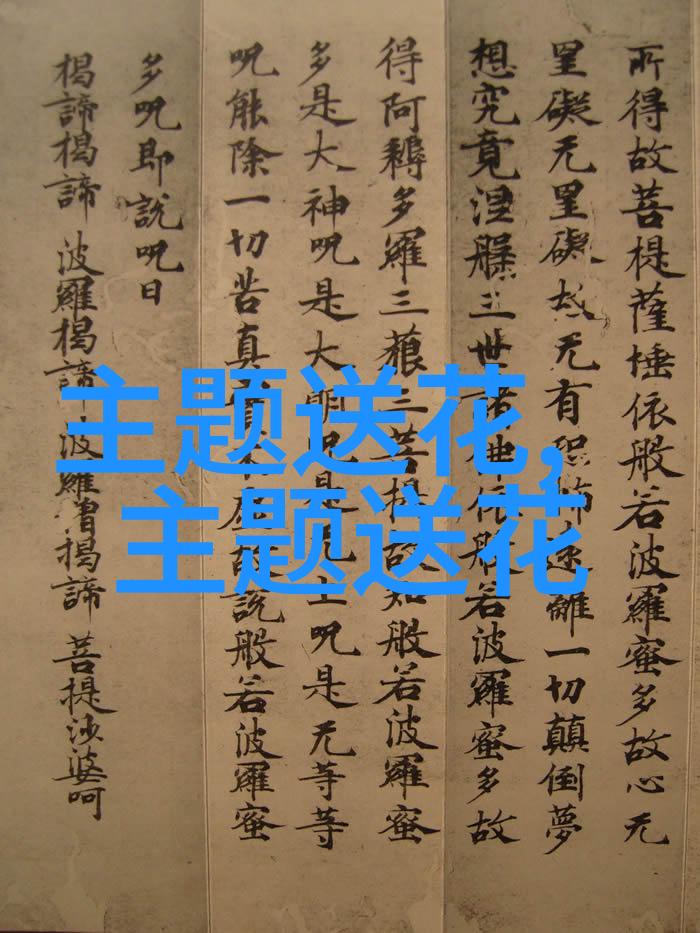 所得故菩提薩埵依般若波羅蜜多故心无
罣礙无罣礙故无有恐怖遠離一切顛倒夢
想究竟涅槃三世諸佛依般若波羅蜜多故
得阿耨多羅三藐三菩提故知般若波羅蜜
多是大神呪是大明呪是无上呪是无等等
呪能除一切苦真實不虛故說般若波羅蜜
多呪即說呪曰
揭諦揭諦 波羅揭諦 波羅僧揭諦 菩提沙婆呵
主题送花,
主题送花